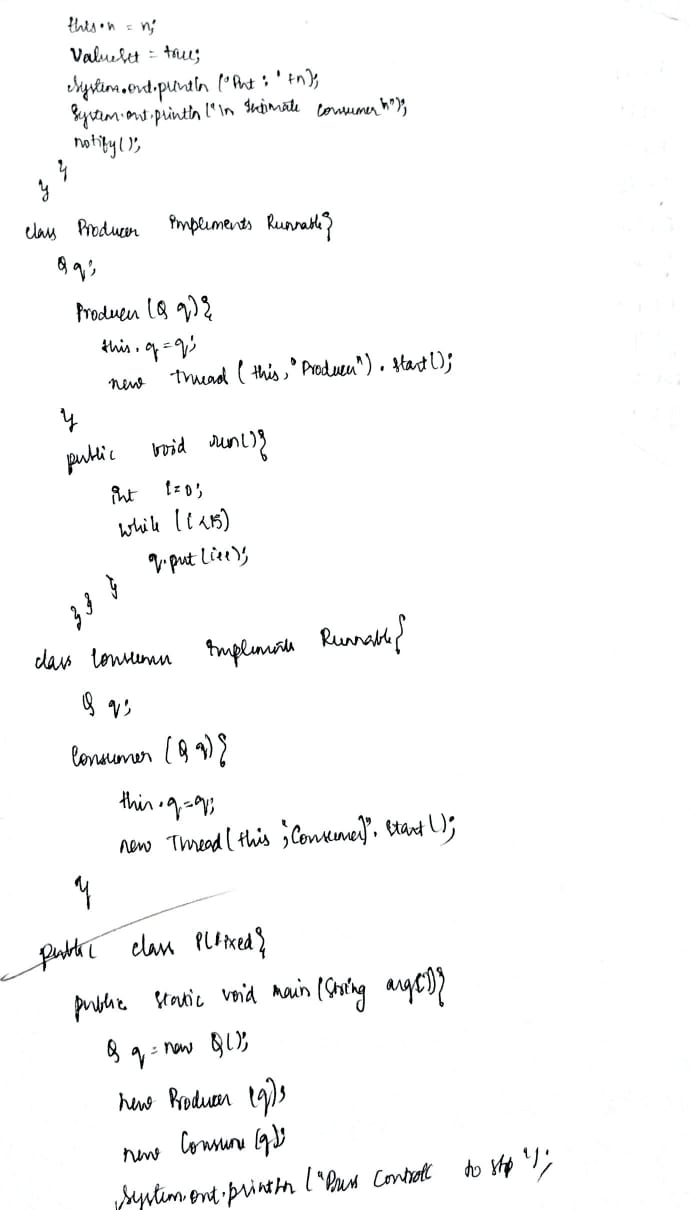 this.n = n;
ValueSet = true;
System.out.println ("Put : " +n);
System.out.println ("\n Intimate Consumer \n");
notify();
}
}
class Producer Implements Runnable{
Q q;
Producer (Q q){
this.q=q;
new Thread (this,"Producer").start();
}
public void run(){
int i=0;
while (i<15)
q.put(i++);
}
}}
class Consumer Implements Runnable{
Q q;
Consumer (Q q){
this.q=q;
new Thread(this ;"Consumer)". start();
}
public class PCFixed{
public static void main (String arg[]){
Q q = new Q();
new Producer (q);
new Consume (q);
System.out.println ("Press Controll to stop ");